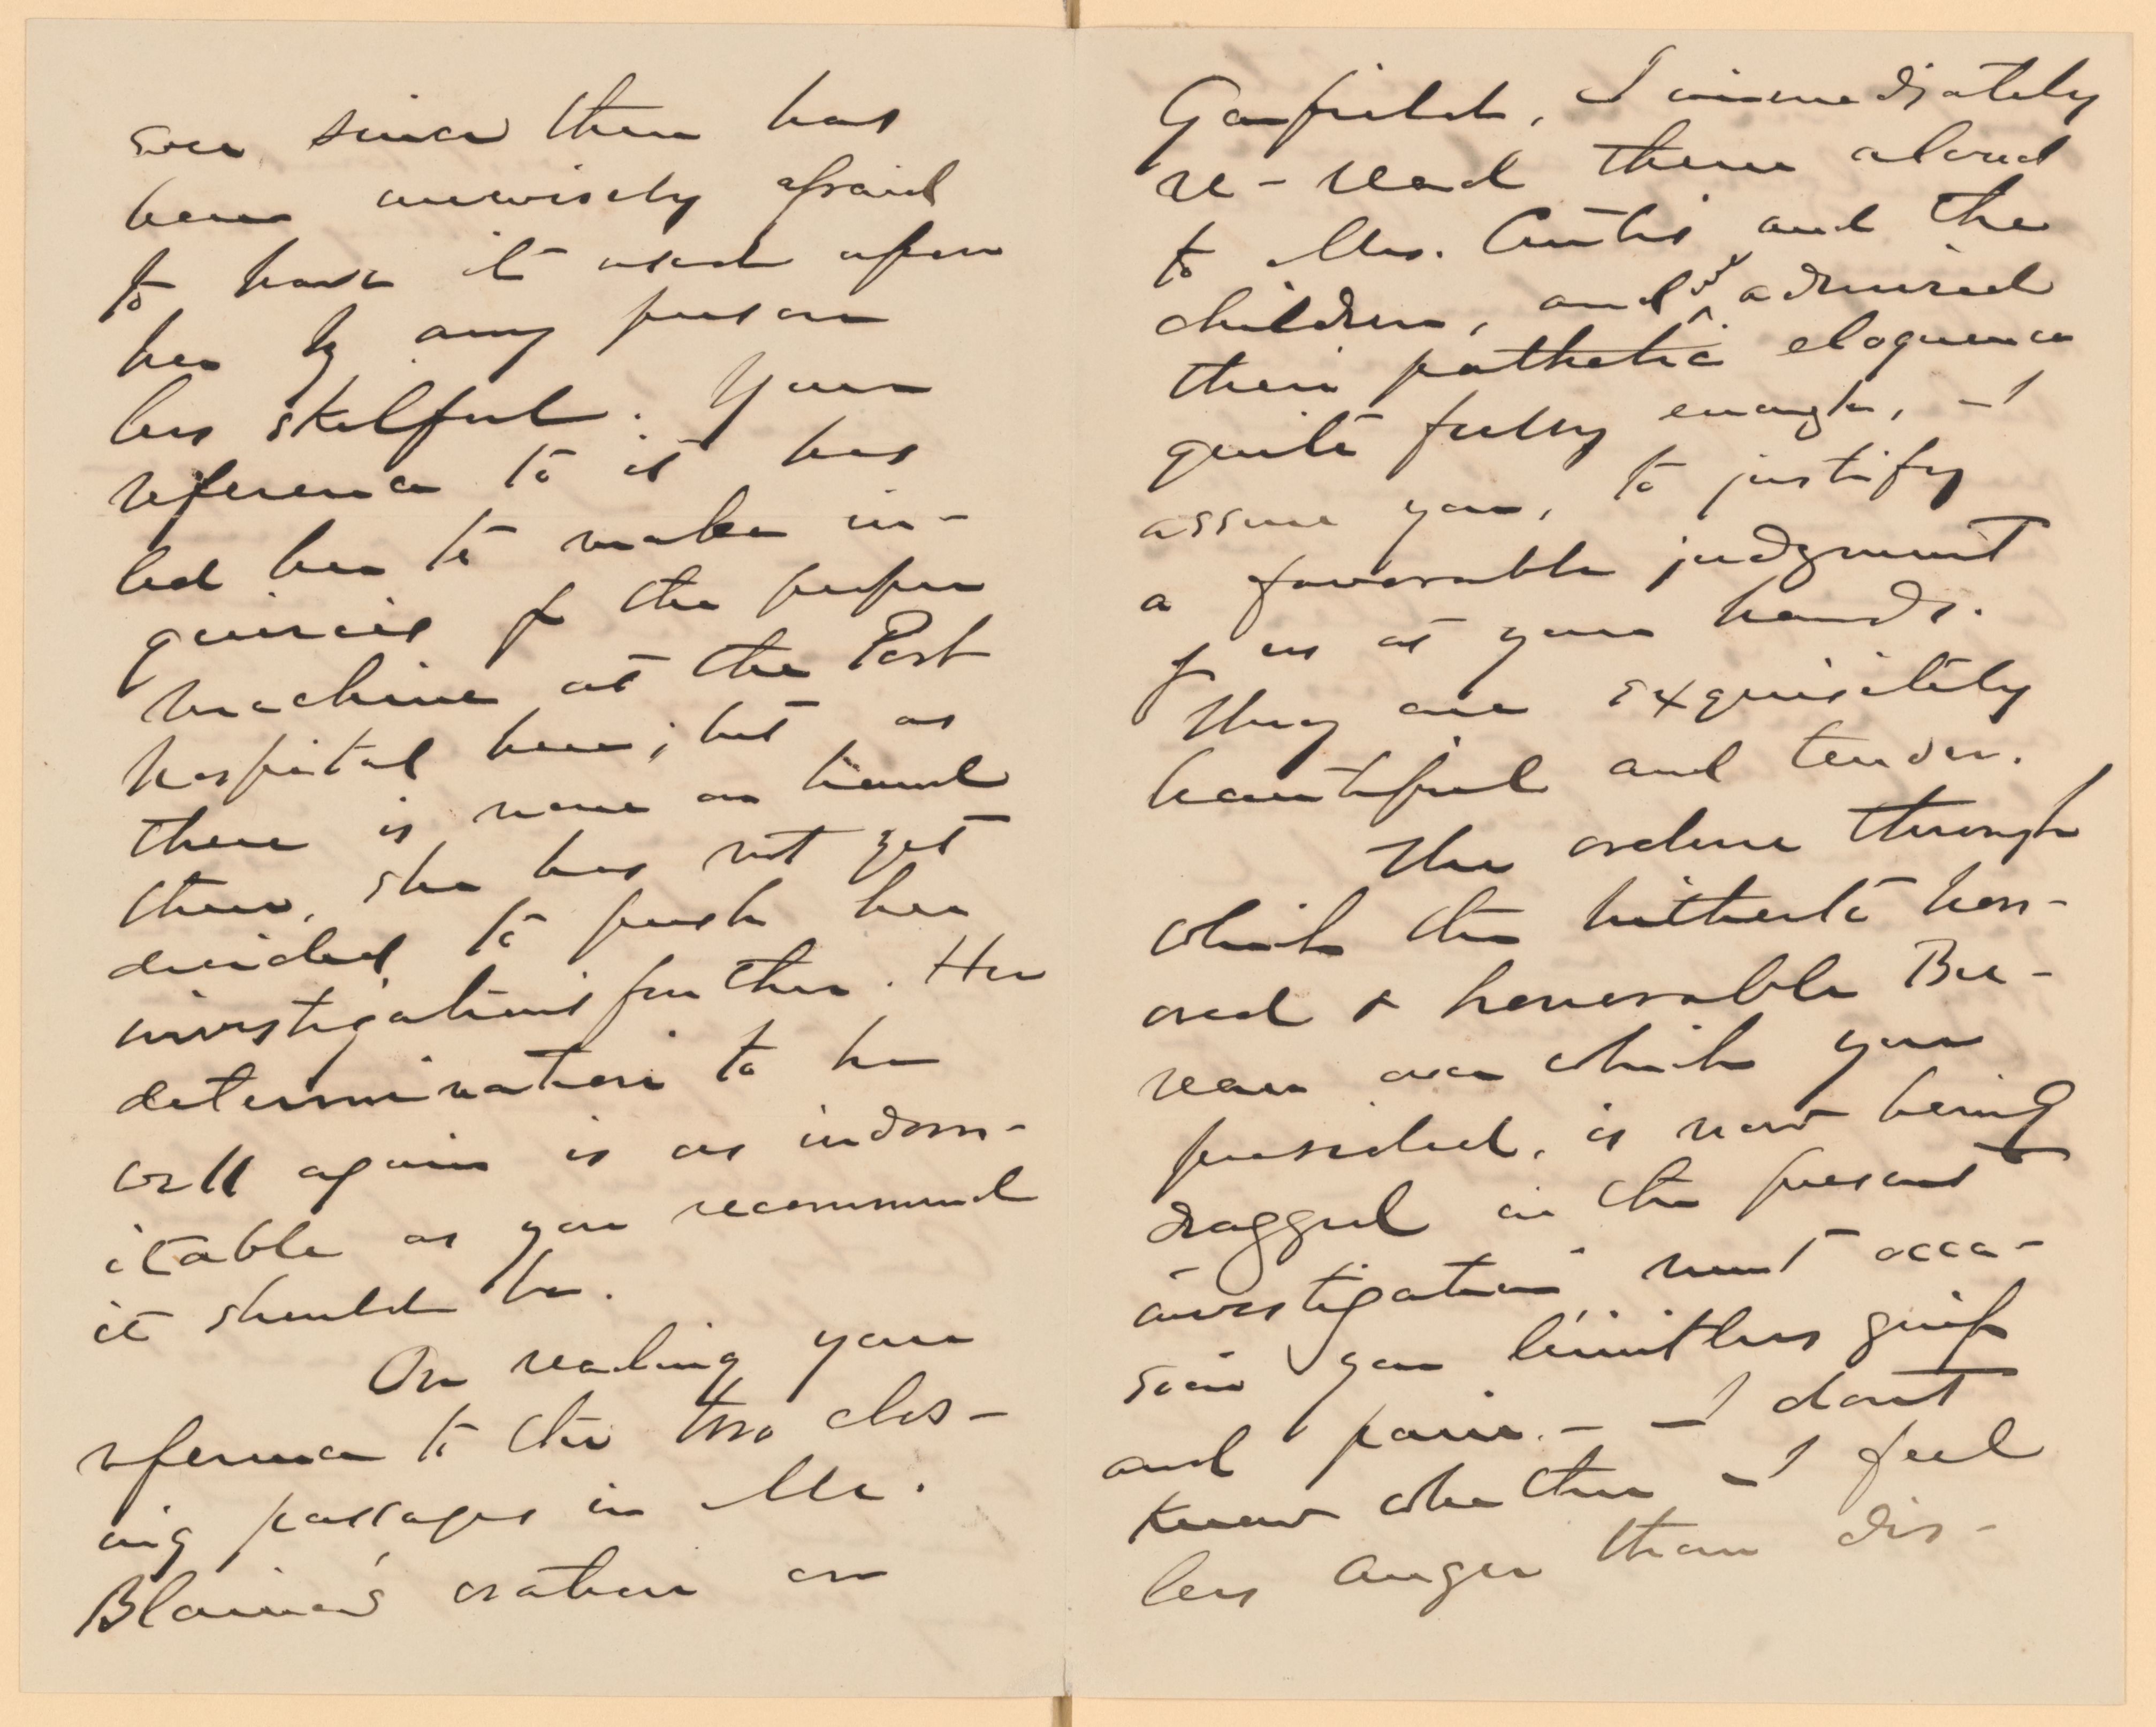 ever since then has
been unwisely afraid
to have it used upon
her by any person
less skilful. Your
reference to it has
led her to make in-
quiries of the proper
machine at the Post
hospital here; but as
there is none on hand
there, she has not yet
decided to push her
investigations further. Her
determination to be
well again is as indom-
itable as you recommend
it should be.
On reading your
reference to the two clos-
ing passages in Mr.
Blaine's oration on
Garfield, I immediately
re-read them aloud
to Mrs. Curtis and the
children, and admired
their pathetic eloquence
quite fully enough, I
assure you, to justify
a favorable judgment
of us at your hands.
They are exquisitely
beautiful and tender.
The ordure through
which the hitherto hon-
ored & honorable Bu-
reau over which you
presided, is now being
dragged in the present
investigation must occa-
sion you limitless grief
and pain. - I don't
know whether I feel
less anger than dis-